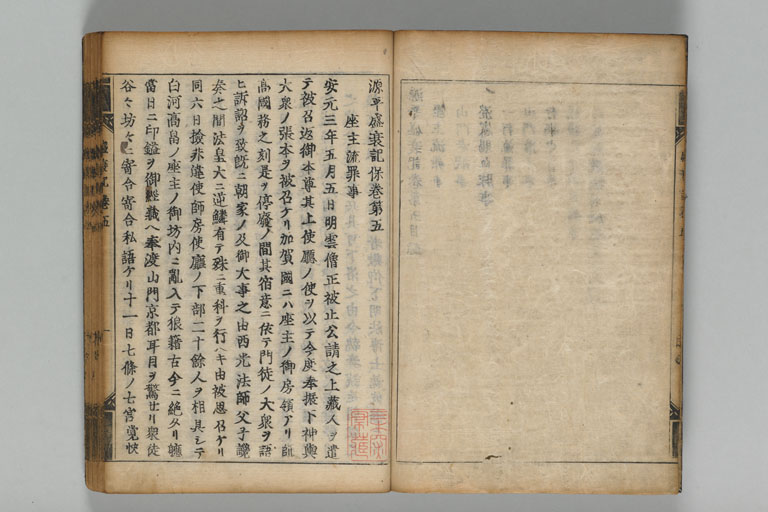 源平盛衰記保巻第五
座主流罪事
安元三年五月五日明雲僧正被止公請之上藏人ヲ遣
テ被召返御本尊其上使廳ノ使ヲ以テ今度奉振下神輿
大衆ノ張本ヲ被召ケリ加賀國ニハ座主ノ御房領アリ師
高國務之刻是ヲ停廢ノ間其宿意ニ依テ門徒ノ大衆ヲ語
ヒ訴訟ヲ致既ニ朝家ノ及御大事之由西光法師父子讒
奏之間法皇大ニ逆鱗有テ殊ニ重科ヲ行ヘキ由被思召ケリ
同六日撿非違使師房使廳ノ下部二十餘人ヲ相具シテ
白河高畠ノ座主ノ御坊内ニ亂入テ狼藉古今ニ絶タリ
當日ニ印鎰ヲ御經藏ヘ奉渡山門京都耳目ヲ驚セリ衆徒
谷々坊々ニ寄合寄合私語ケリ十一日七條ノ七宮覺快
衰記巻五